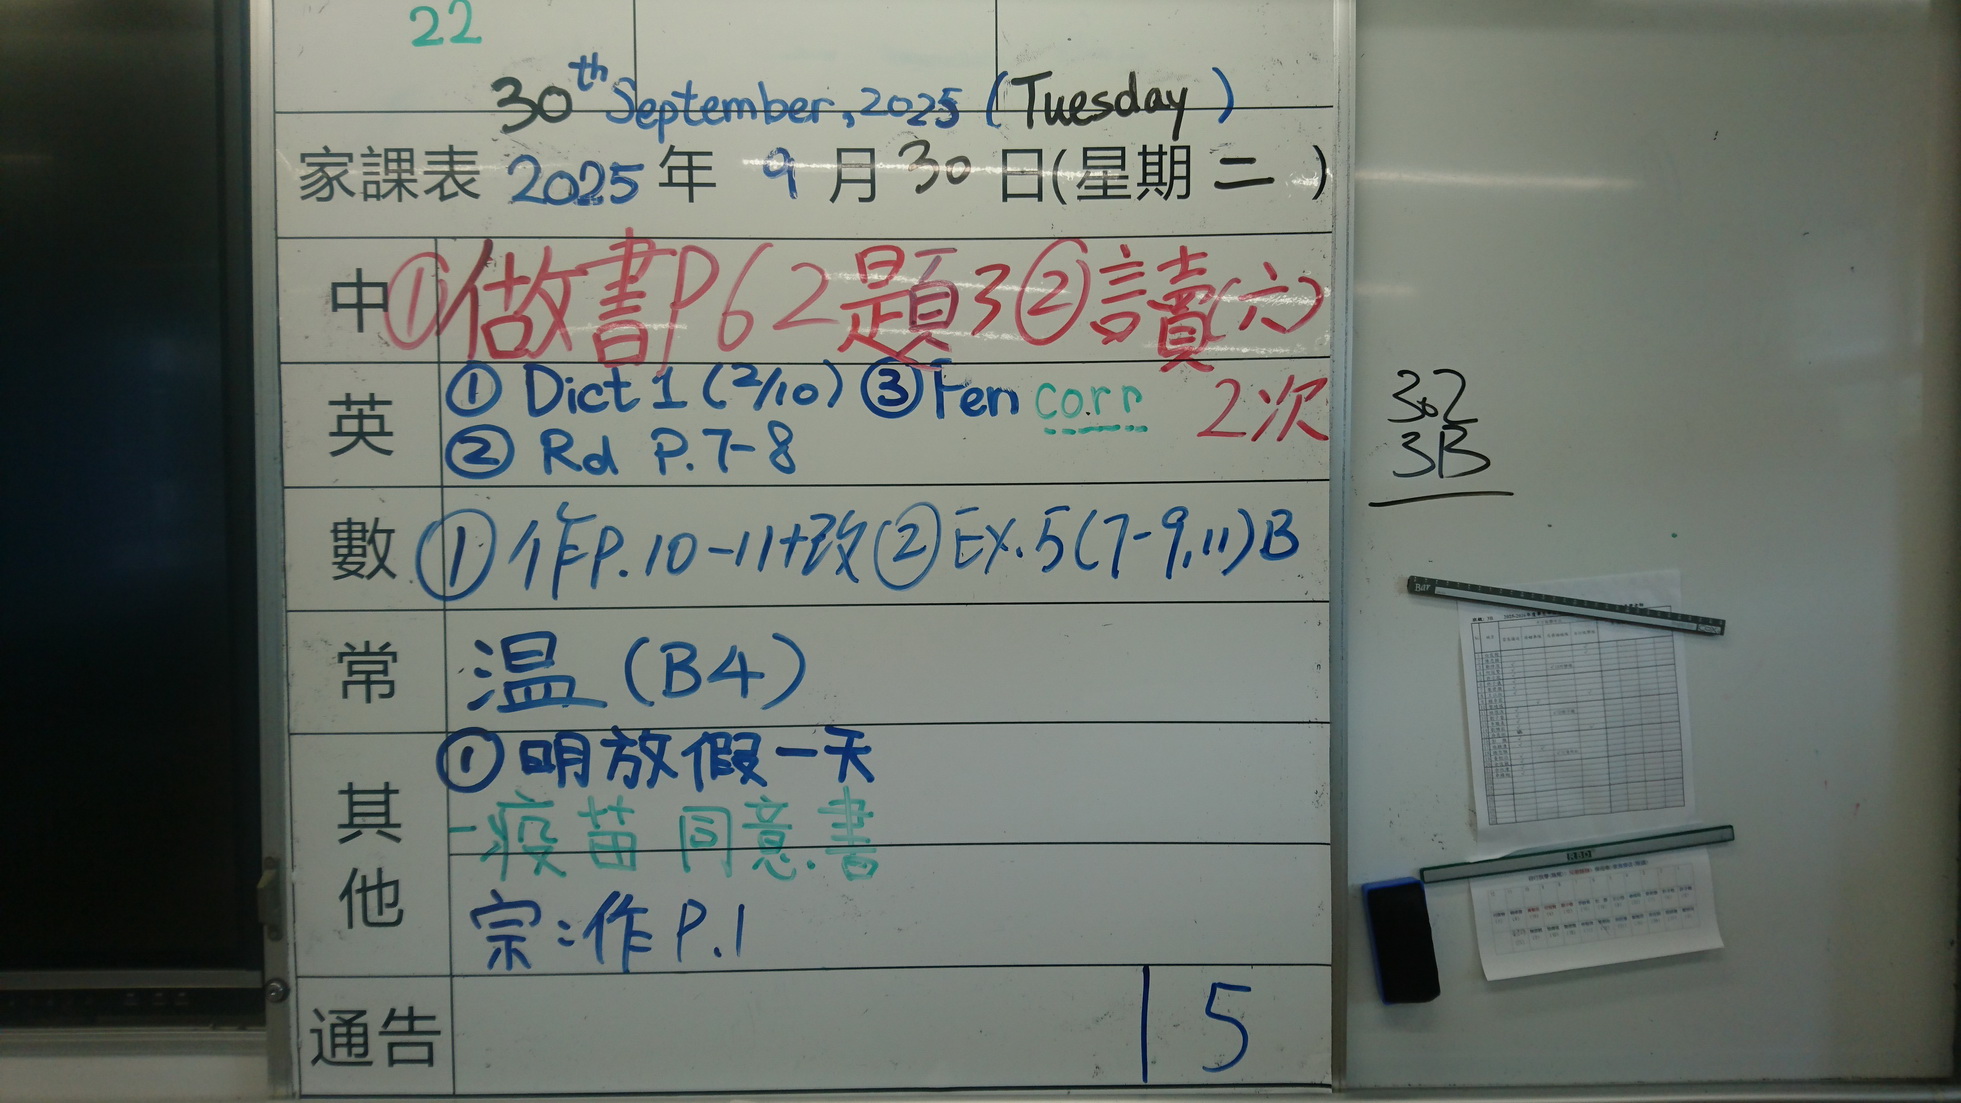 22
30th September, 2025 (Tuesday)
家課表 2025 年 9 月 30 日(星期 二 )
中 ①做書P62題3②讀(六)
2次
英 ① Dict 1 (2/10) ③ Fen corr
② Rd P.7-8
數 ①作P.10-11+改②EX.5(7-9,11)B
常 温(B4)
其他 ①明放假一天
-疫苗同意書
宗:作P.1
通告 15
302
3B